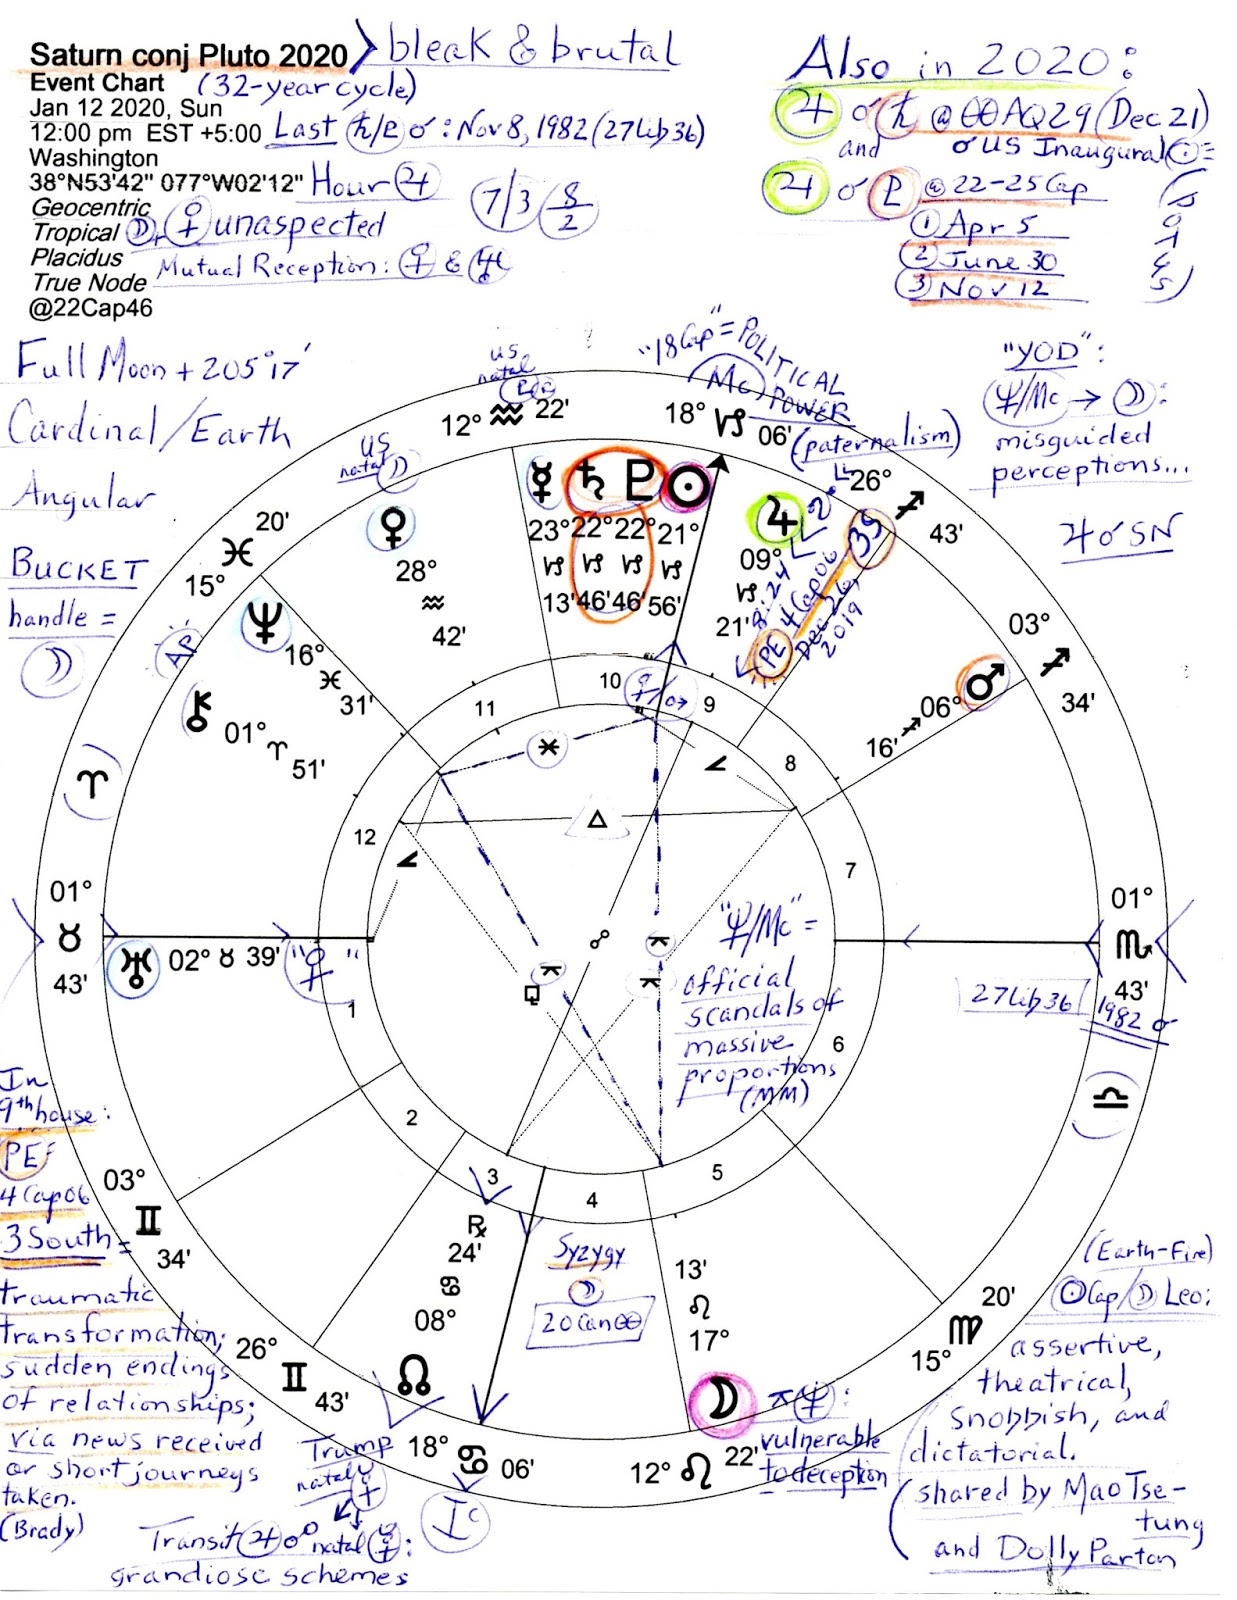 Saturn conj Pluto 2020 > bleak & brutal
Event Chart (32-year cycle)
Jan 12 2020, Sun
12:00 pm EST +5:00 Last ♄/♇ ☌: Nov 8, 1982 (27Lib36)
Washington
38°N53'42" 077°W02'12" Hour ♃
Geocentric
Tropical ☽, ♀ unaspected
Placidus Mutual Reception: ♀ & ♆
True Node
@22Cap46
7/3 8/2
Also in 2020:
♃ ☌ ♄ @ 00AQ29 (Dec 21)
and ☌ US Inaugural ☉
♃ ☌ ♇ @ 22-25 Cap
① Apr 5
② June 30
③ Nov 12
Full Moon + 205°17'
Cardinal/Earth
Angular
BUCKET
handle =
☽
US
natal
12° ♒ 22'
"18Cap" = POLITICAL
POWER
(paternalism)
Mc
18° ♑ 06'
"YOD":
♆/Mc → ☽:
misguided
perceptions...
♃ ☌ SN
US
natal ☽
26° ♐ 43'
20' ♓ 15°
♀ 28° ♒ 42'
☿ 23° ♑ 13'
♄ 22° ♑ 46'
♇ 22° ♑ 46'
☉ 21° ♑ 56'
♃ 09° ♑ 21'
8:24
PE 4Cap06
Dec 26,
2019
3S
AP
♆ 16° ♓ 31'
⚷ 01° ♈ 51'
03° ♐ 34'
♂ 06° ♐ 16'
♈
01° ♉ 43'
♅ 02° ♉ 39'
"♀"
01° ♏ 43'
27Lib36
1982 ☌
♎
10
11
12
1
2
3
4
5
6
7
8
9
"♆/Mc" =
official
scandals of
massive
proportions
(MM)
In
9th house:
PE
4Cap06
3 South =
traumatic
transformation;
sudden endings
of relationships;
via news received
or short journeys
taken.
(Brady)
03° ♊ 34'
26° ♊ 43'
℞
24'
♋
08°
☊
18° ♋ 06'
Ic
Syzygy
☽
20Can00
13'
♌
17°
☽
12° ♌ 22'
⚻ ♆:
vulnerable
to deception
20' ♍ 15°
Trump
natal
Transit ♃ ☍ natal ☿:
grandiose schemes
(Earth-Fire)
☉Cap/☽Leo:
assertive,
theatrical,
snobbish, and
dictatorial.
(shared by Mao Tse-
tung
and Dolly Parton